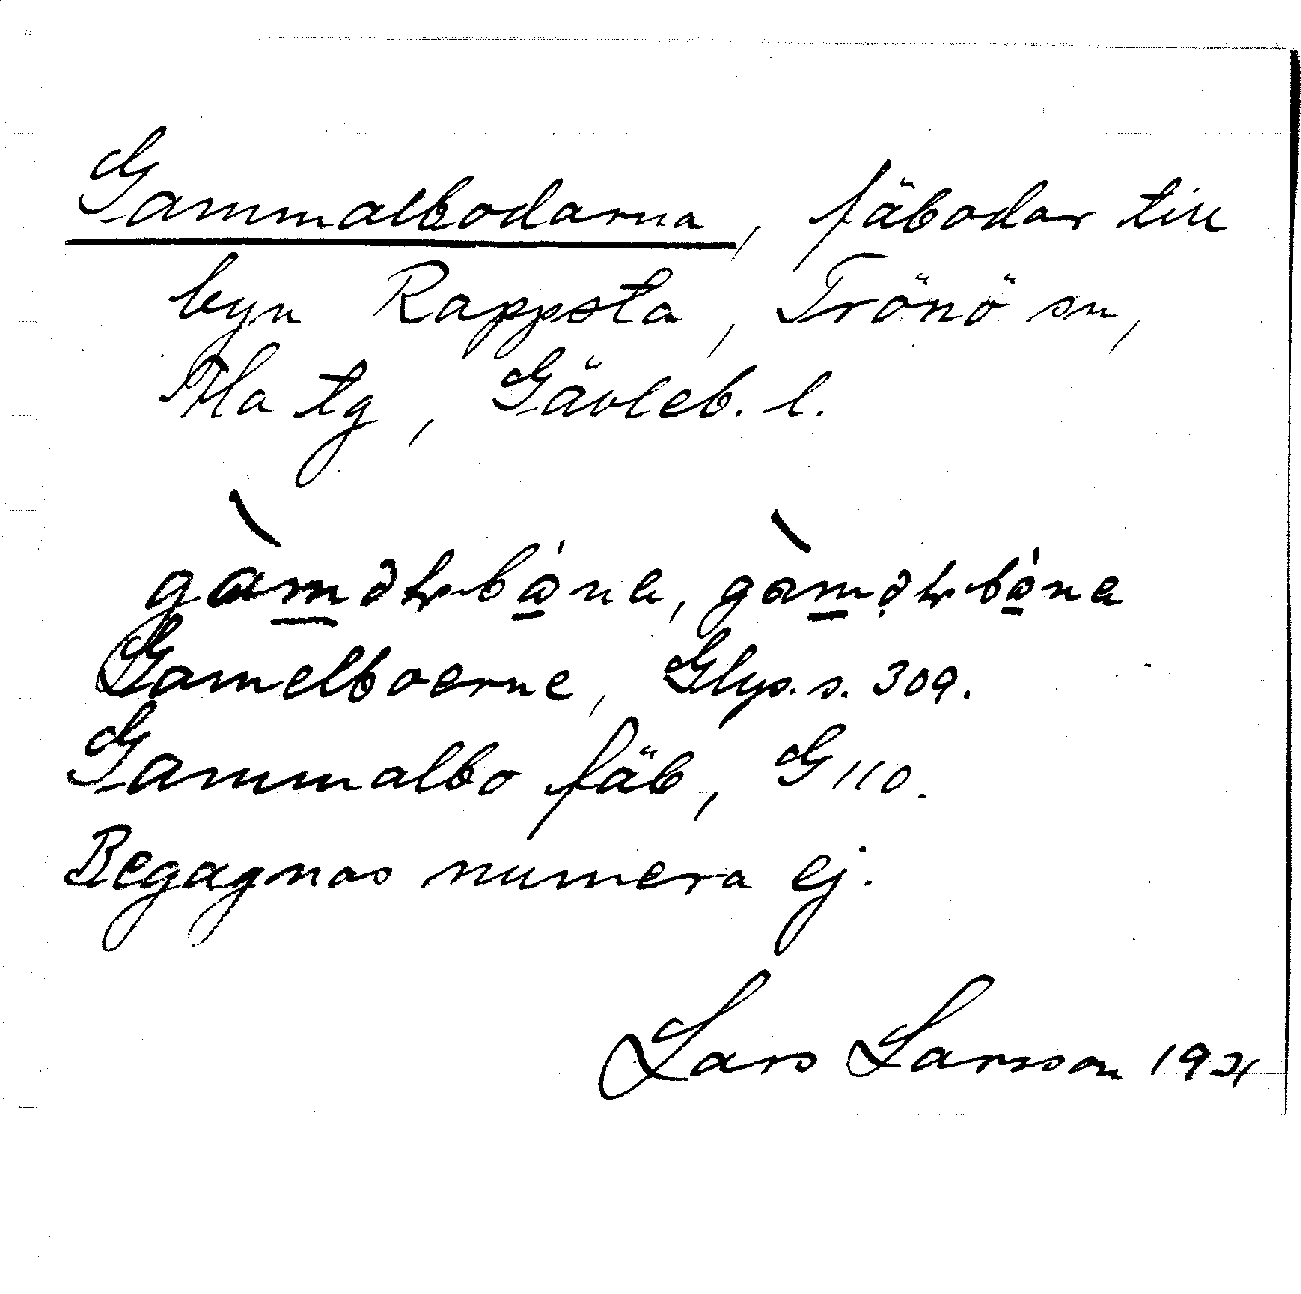 Gammalbodarna, fäbodar till
byn Rappsta, Trönö sn,
Ala tg, Gävleb. l.
Gamelboerne, Glys. s. 309.
Gammalbo fäb, G 110.
Begagnas numera ej.
Lars Larsson